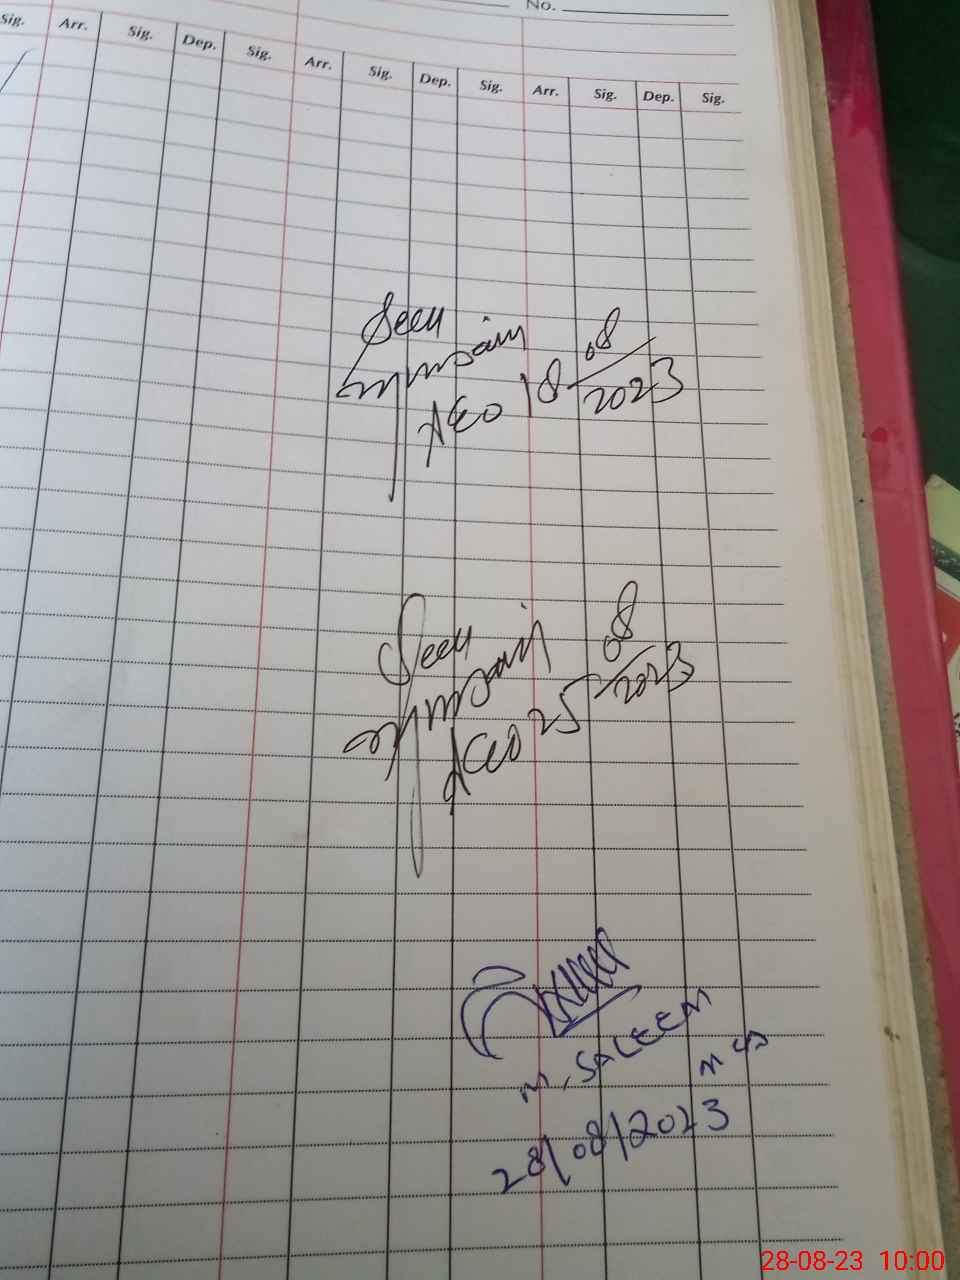 No.
Sig. Arr. Sig. Dep. Sig. Arr. Sig. Dep. Sig. Arr. Sig. Dep. Sig.
Seen
AEO 18 08/2023
Seen
AEO 25 08/2023
M. SALEEM
28/08/2023
28-08-23 10:00